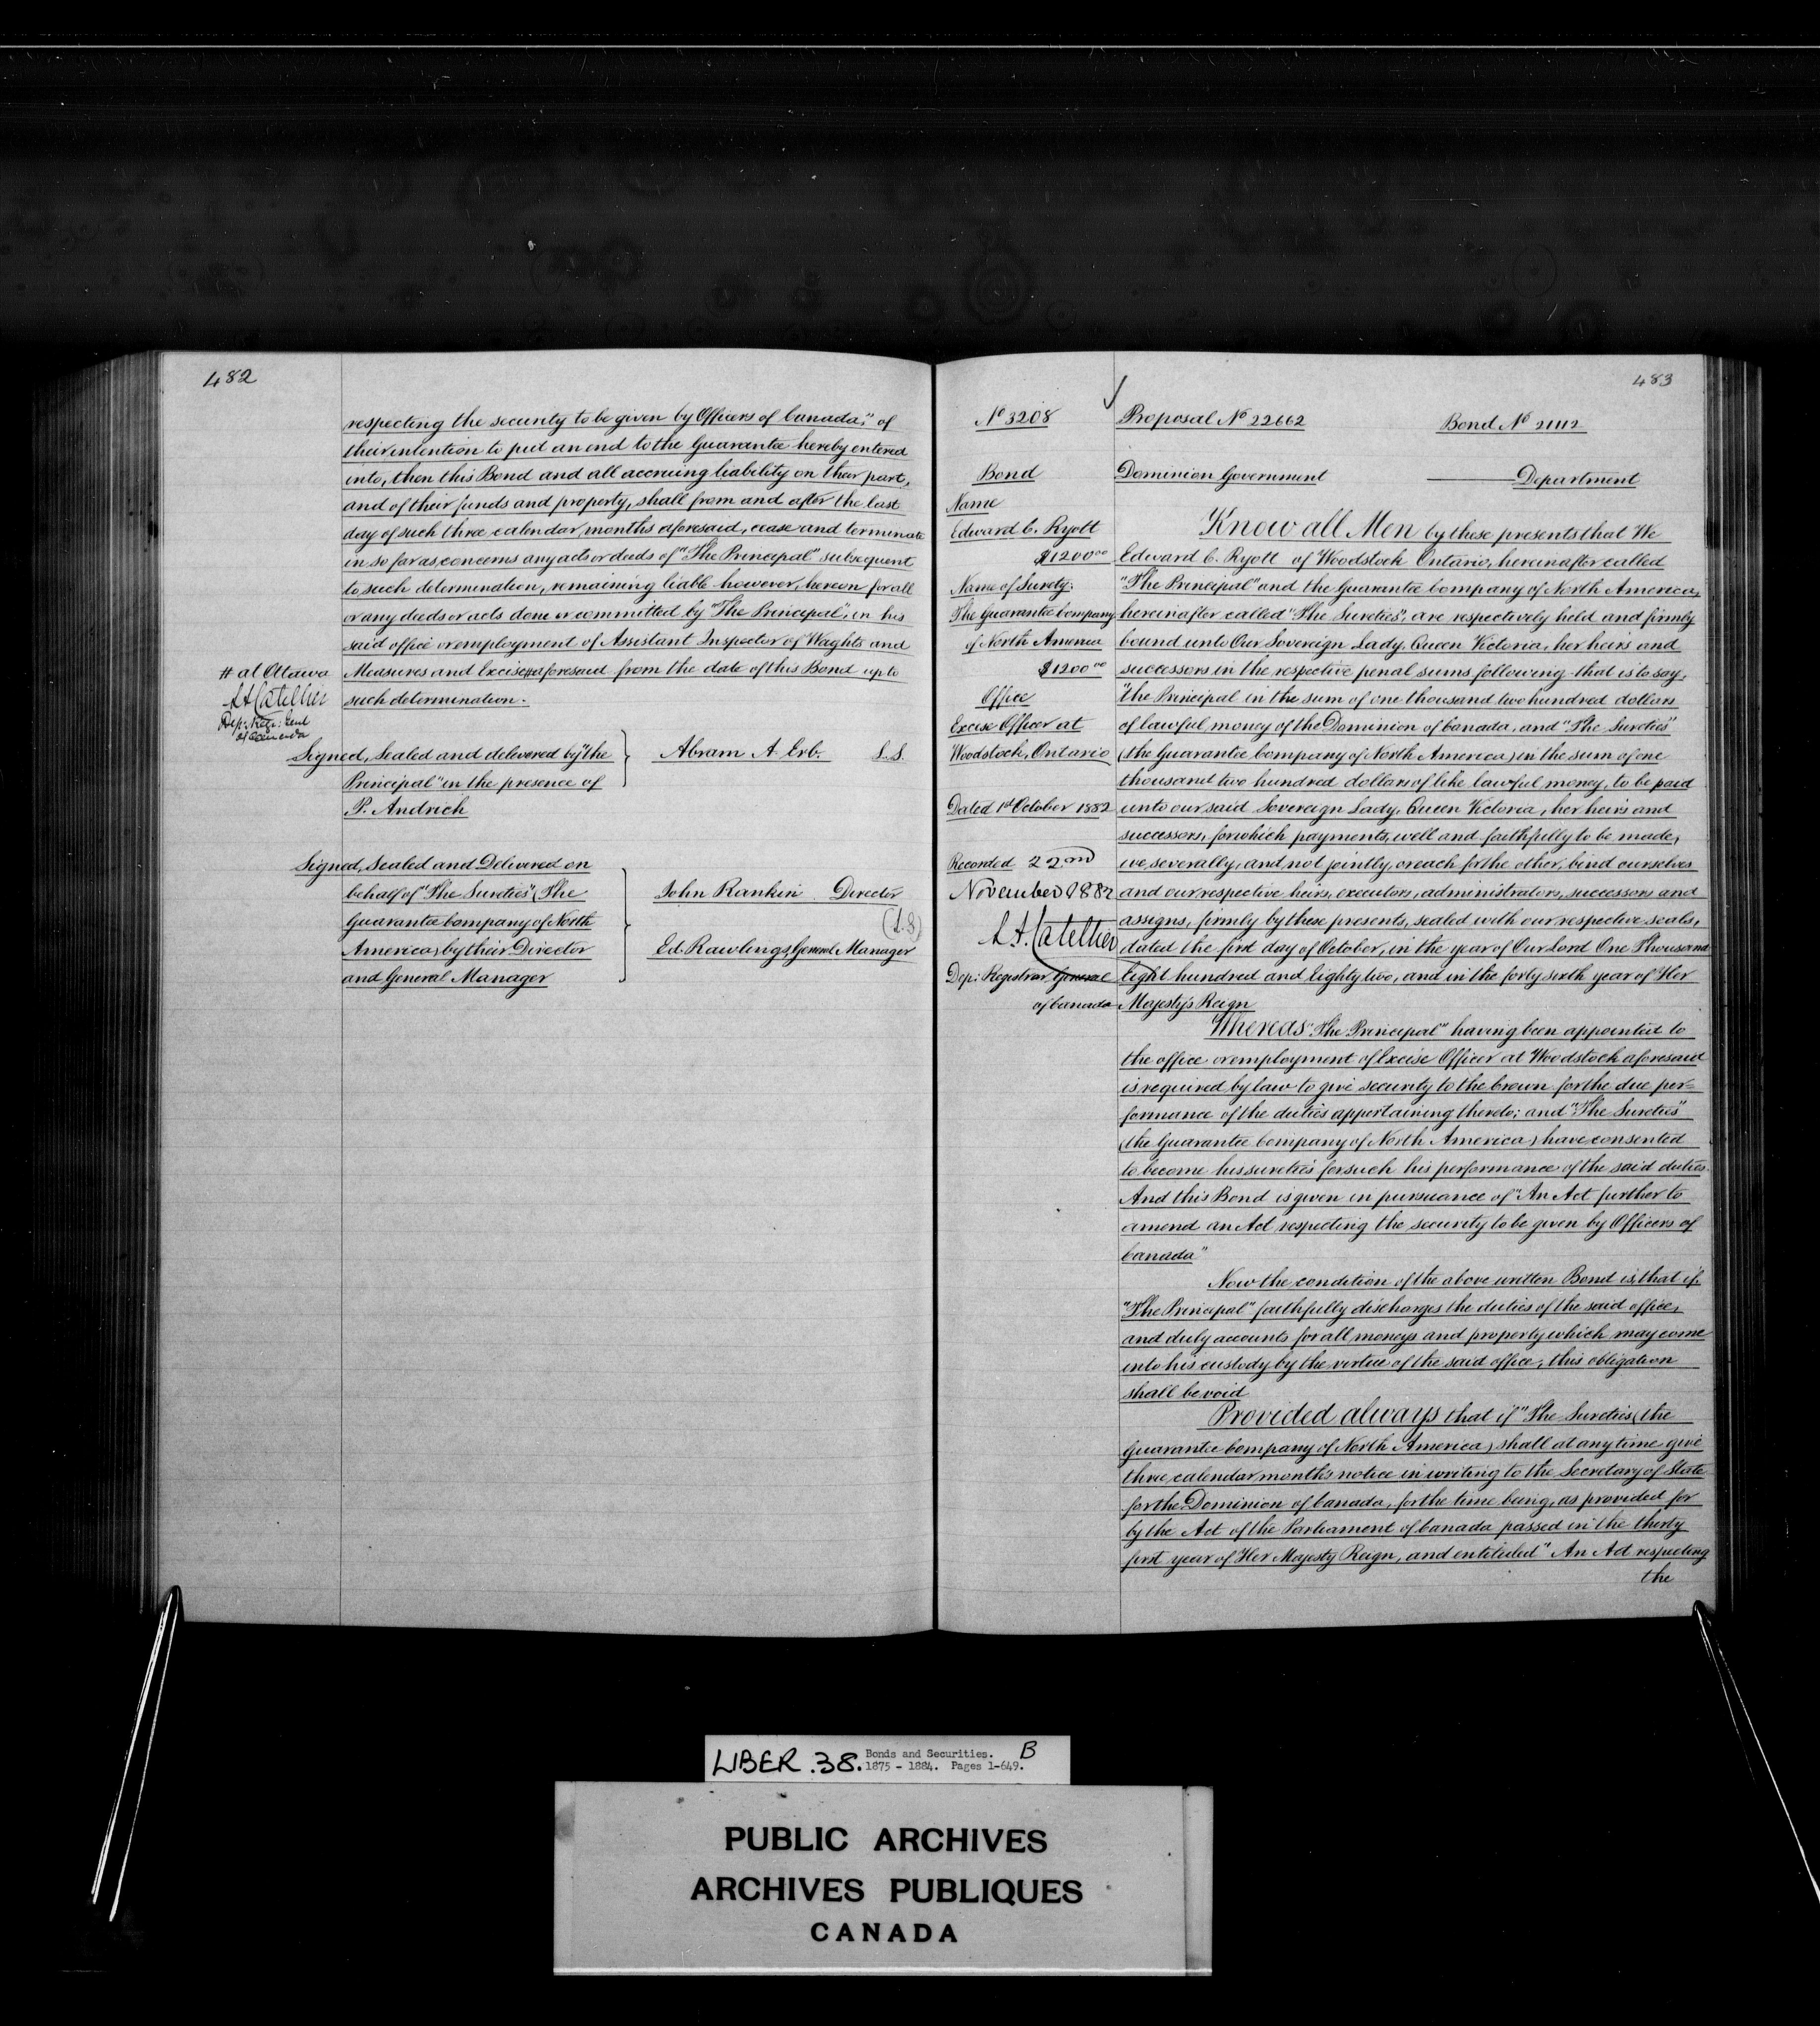 482
respecting the security to be given by Officers of Canada," of
their intention to put an end to the Guarantee hereby entered
into, then this Bond and all accruing liability on their part,
and of their funds and property, shall from and after the last
day of such three calendar months aforesaid, cease and terminate
in so far as concerns any acts or deeds of "The Principal" subsequent
to such determination, remaining liable however, hereon for all
or any deeds or acts done or committed by "The Principal", in his
said office or employment of Assistant Inspector of Weights and
Measures and Excise # aforesaid from the date of this Bond up to
such determination.
# at Ottawa
Dep: Reg: Genl
of Canada
Signed, Sealed and delivered by "the
Principal" in the presence of
P. Andrich
Abram A. Erb. L.S.
Signed, Sealed and Delivered on
behalf of "The Sureties" (The
Guarantee Company of North
America) by their Director
and General Manager
John Rankin Director
(L.S)
Ed. Rawlings, General Manager
483
No 3208
Bond
Name
Edward C. Ryott
$1200 00
Name of Surety:
The Guarantee Company
of North America
$1200 00
Office
Excise Officer at
Woodstock, Ontario
Dated 1st October 1882
Recorded 22nd
November 1882
Dep: Registrar General
of Canada
Proposal No 22662 Bond No 21112
Dominion Government Department
Know all Men by these presents that We
Edward C. Ryott of Woodstock Ontario, hereinafter called
"The Principal" and the Guarantee Company of North America,
hereinafter called "The Sureties", are respectively held and firmly
bound unto Our Sovereign Lady, Queen Victoria, her heirs and
successors in the respective penal sums following that is to say,
"the Principal in the sum of one thousand two hundred dollars
of lawful money of the Dominion of Canada, and "The Sureties"
(the Guarantee Company of North America) in the sum of one
thousand two hundred dollars of like lawful money, to be paid
unto our said Sovereign Lady, Queen Victoria, her heirs and
successors, for which payments, well and faithfully to be made,
we, severally, and not jointly, or each for the other, bind ourselves
and our respective heirs, executors, administrators, successors and
assigns, firmly by these presents, sealed with our respective seals,
dated the first day of October, in the year of Our Lord One Thousand
Eight hundred and Eighty two, and in the forty sixth year of Her
Majesty's Reign
Whereas "The Principal" having been appointed to
the office or employment of Excise Officer at Woodstock aforesaid
is required by law to give security to the Crown for the due per=
formance of the duties appertaining thereto; and "The Sureties"
(the Guarantee Company of North America) have consented
to become his sureties for such his performance of the said duties.
And this Bond is given in pursuance of "An Act further to
amend an Act respecting the security to be given by Officers of
Canada"
Now the condition of the above written Bond is, that if
"The Principal" faithfully discharges the duties of the said office,
and duly accounts for all moneys and property which may come
into his custody by the virtue of the said office, this obligation
shall be void
Provided always that if "The Sureties (the
Guarantee Company of North America) shall at any time give
three calendar months notice in writing to the Secretary of State
for the Dominion of Canada, for the time being, as provided for
by the Act of the Parliament of Canada passed in the thirty
first year of Her Majesty Reign, and entituled "An Act respecting
the
LIBER .38. Bonds and Securities. B
1875 - 1884. Pages 1-649.
PUBLIC ARCHIVES
ARCHIVES PUBLIQUES
CANADA